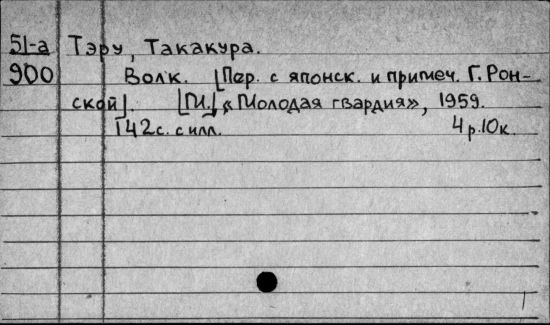 51-а Тэру, Такакура.
900 Волк. [Пер. с японск. и примеч. Г. Рон-
ской]. [М.], «Молодая гвардия», 1959.
142 с. с илл. 4 р. 10 к.